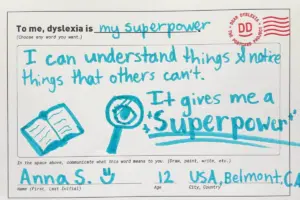 To me, dyslexia is my superpower
(Choose any word you want.)
DEAR DYSLEXIA
DD
THE POSTCARD PROJECT
I can understand things & notice
things that others can't.
It gives me a
Superpower
In the space above, communicate what this word means to you. (Draw, paint, write, etc.)
Anna S. 12 USA, Belmont, CA
Name (First, Last Initial) Age City, Country